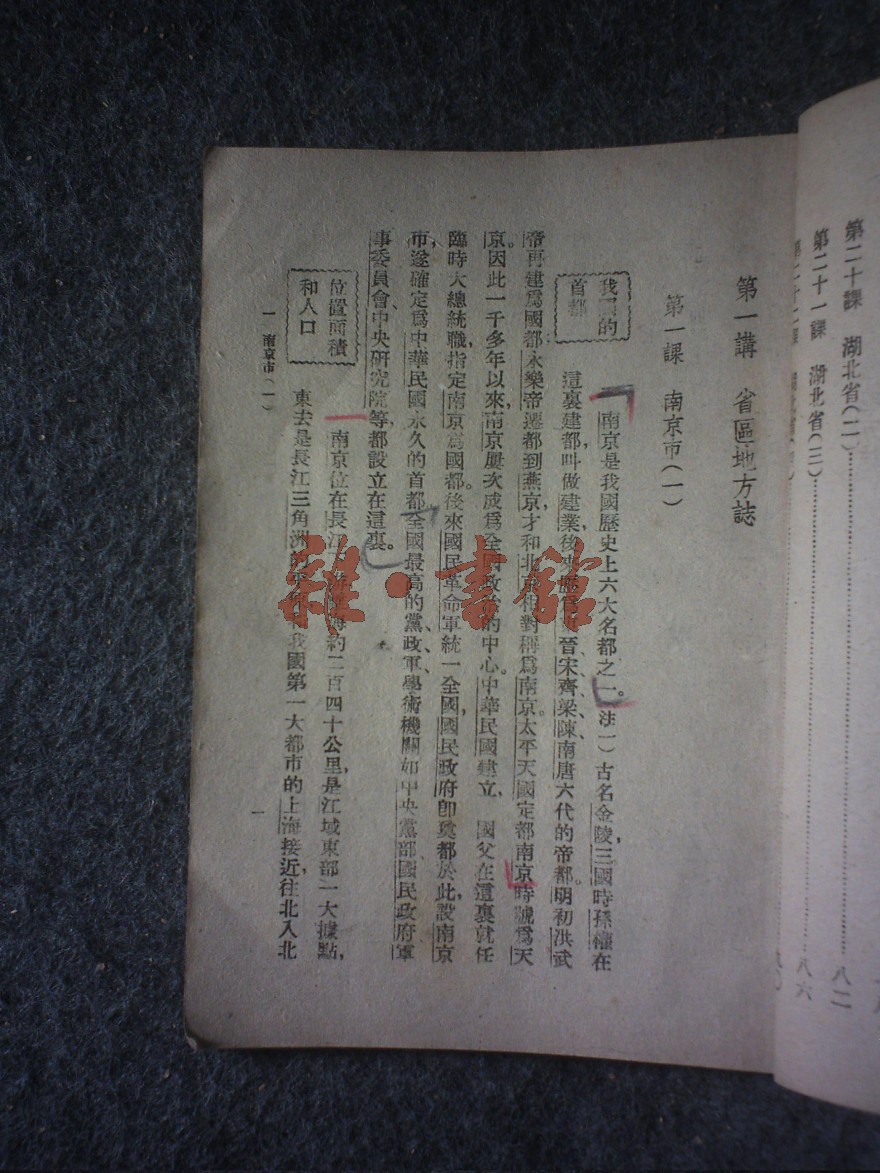 第二十課　湖北省(二)……………八二
第二十一課　湖北省(三)……………八六
第一講　省區地方誌
第一課　南京市(一)
我國的首都
南京是我國歷史上六大名都之一。(注一)古名金陵,三國時孫權在
這裏建都,叫做建業,後來歷爲東晉、宋、齊、梁、陳、南唐六代的帝都。明初洪武
帝再建爲國都,永樂帝遷都到燕京,才和北京相對稱爲南京。太平天國定都南京時,號爲天
京。因此一千多年以來,南京屢次成爲全國政治的中心。中華民國建立,　國父在這裏就任
臨時大總統職,指定南京爲國都。後來國民革命軍統一全國,國民政府卽奠都於此,設南京
市,遂確定爲中華民國永久的首都。全國最高的黨、政、軍、學術機關如中央黨部、國民政府、軍
事委員會、中央研究院等,都設立在這裏。
位置面積和人口
南京位在長江下游,距海約二百四十公里,是江域東部一大據點,
東去是長江三角洲的,我國第一大都市的上海接近,往北入北
一　南京市(一)
一
雜·書館